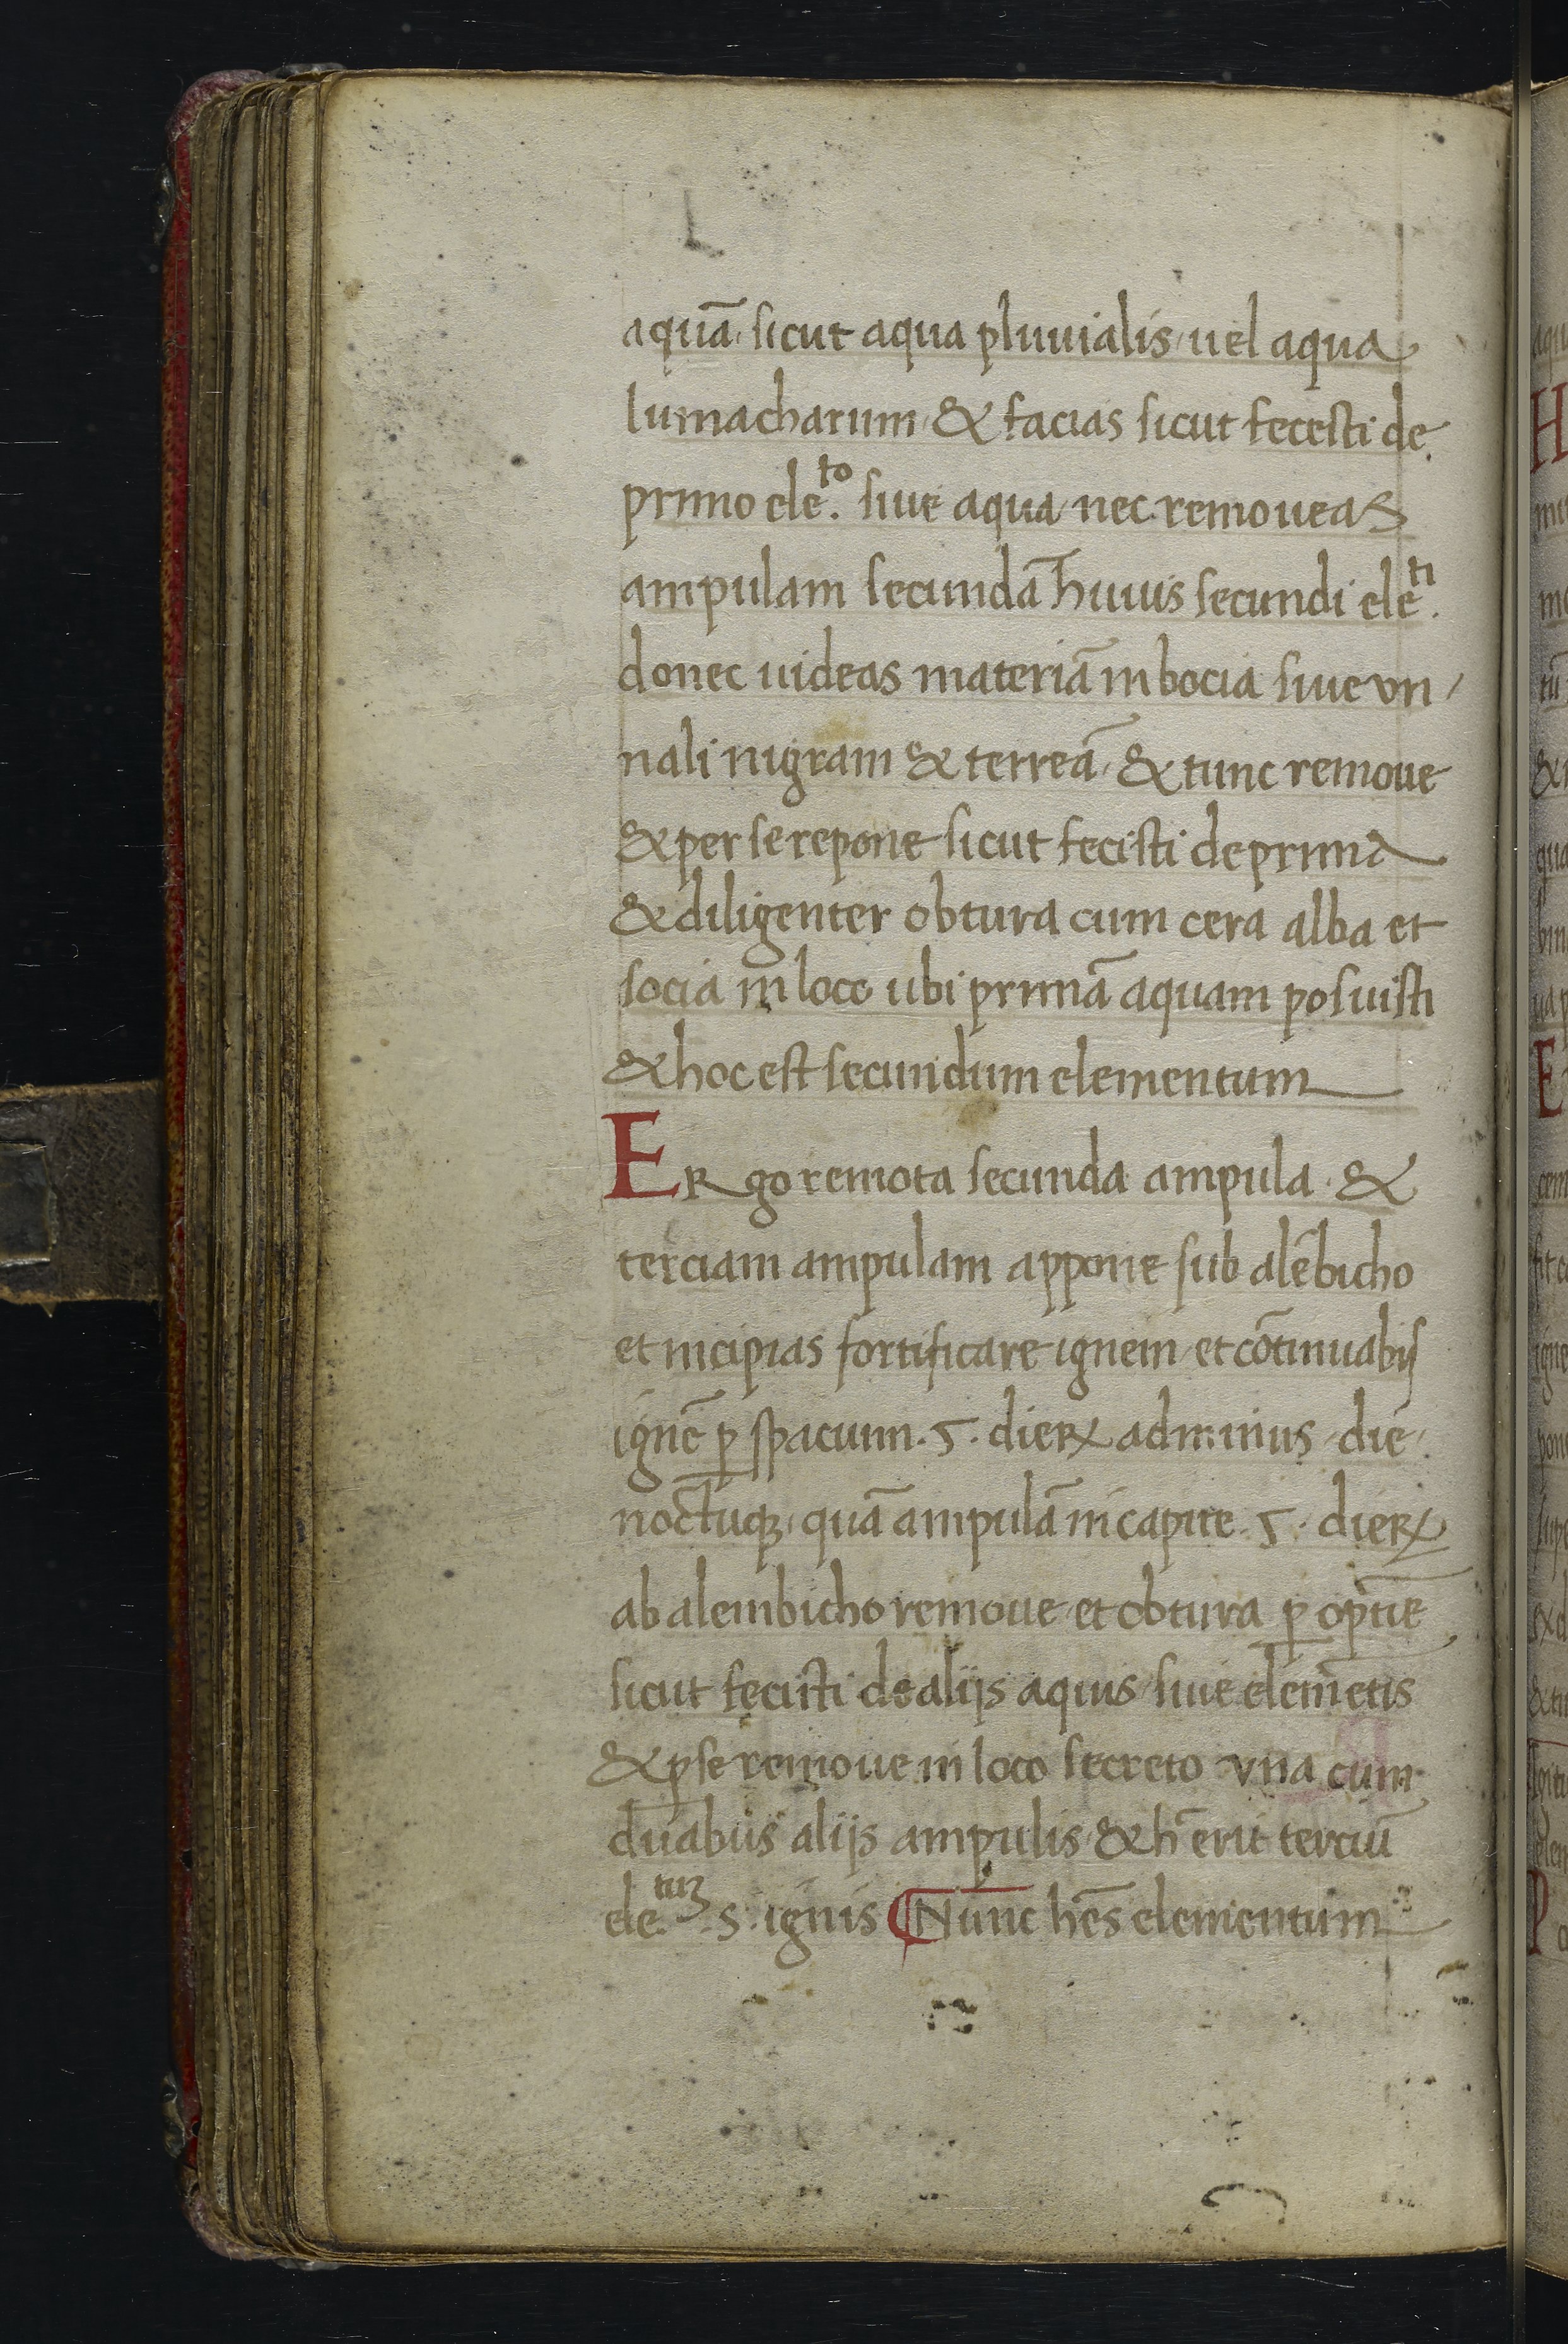 aquā, sicut aqua pluuialis, uel aqua
lumacharum, & facias sicut fecesti de
primo eleᵗᵒ. siue aqua, nec remoueas
ampulam secundā huius secundi eleᵗⁱ.
donec uideas materiā in bocia siue vri /
nali nigram & terreā, & tunc remoue
& per se repone sicut fecisti de prima
& diligenter obtura cum cera alba et
socia in loco ubi primā aquam posuisti
& hoc est secundum elementum
ERgo remota secunda ampula · &
terciam ampulam appone sub alēbicho
et incipias fortificare ignem, et cōtinuabis
ignē ꝑ spacium · 5 · dieꝝ ad minus, die,
noctuqꝫ, quā ampulā in capite · 5 · dieꝝ
ab alembicho remoue, et obtura ꝑ optīe
sicut fecisti de alijs aquis, siue elemētis
& ꝑ se remoue in loco secreto vna cum
duabus alijs ampulis, & h̄ erit terciū
eleᵗᵘᵐ. s. ignis ¶ Nunc hēs elementum